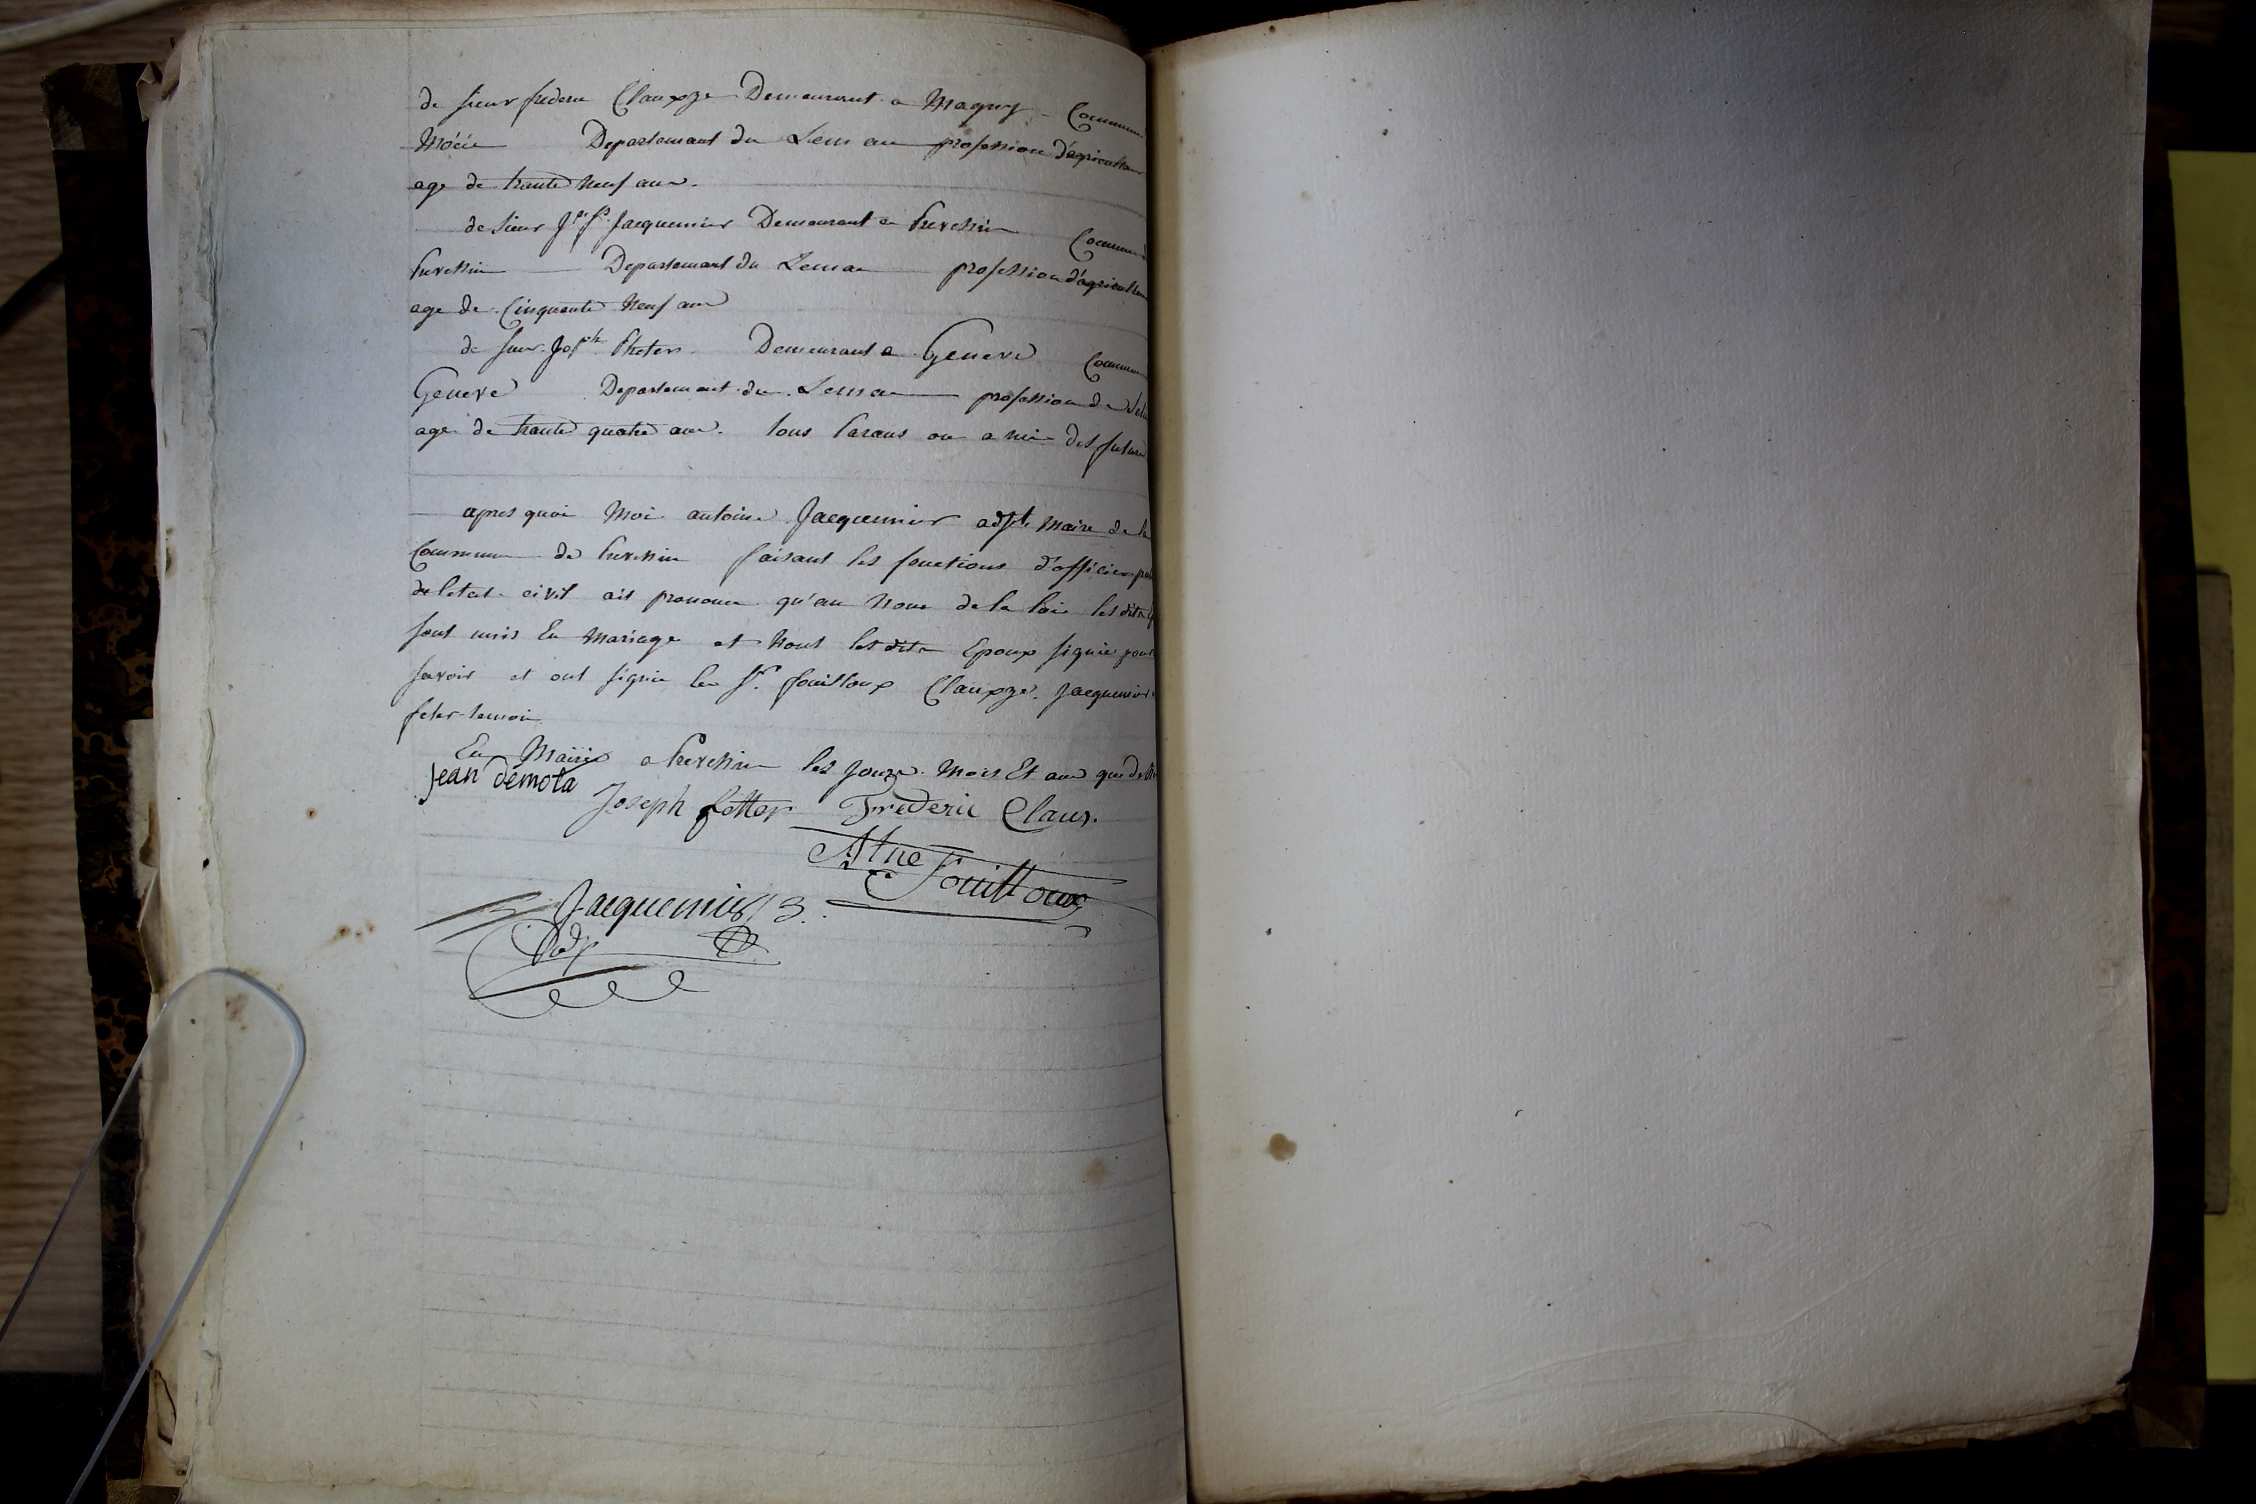 de sieur frederic Clauxze Demeurant a Magny Commune
Möëin Departement du Leman profession d'agriculteur
age de trante Neuf ans.
de sieur Jn fs Jacquemier Demeurant a Prevessin Commune
Prevessin Departement du Leman profession d'agriculteur
age de Cinquante Neuf ans
de sieur Joph Pheter Demeurant a Geneve Commune
Geneve Departement du Leman profession de
agé de trante quatre ans. tous Parans ou amis des futurs
apres quoi Moi antoine Jacquemier adjt Maire de la
Commune de Prevessin faisant les fonctions d'officier
de letat civil ait prononcé qu'au Nom de la loi les dits
sont unis En Mariage et Nont les dits Epoux signié pour
savoir et ont signié les Sr. fouilloux Clauxze. Jacquemier
feter temoin
En Mairie a Prevessin les jours Mois Et an que dessus
Jean démota
Joseph fetter Frederic Claux.
Atne Fouilloux
Jacquemier
adj